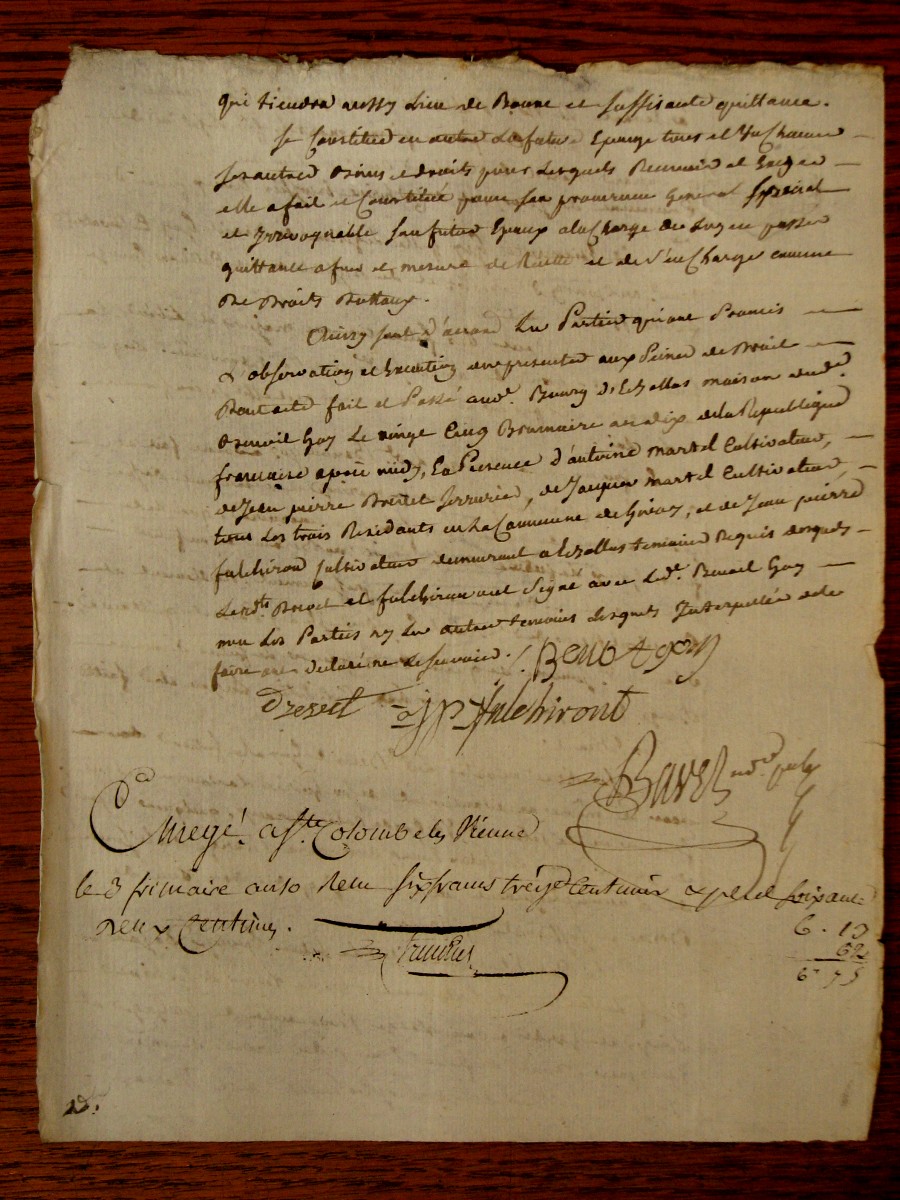 qui tiendra aussy Lieu de Bonne et suffisante quittance.
Se Constitue en outre La future Epouze tous et Un Chacun
ses autres Biens et droits pour Lesquels Recevoir et Exiger
elle a fait et Constitué pour son procureur General special
et Irrevoquable son futur Epoux a la Charge de Luy en passer
quittance a fur et mesure de Recette et de s'en Charger comme
De Droits Dottaux.
Ainsy sont d'accord Les Parties qui ont Promis
L'observation et Execution des presentes aux Peines de Droit
Dont acte fait et Passé aud.t Bourg d'Echallas maison dud.t
Benoit Goy Le vingt Cinq Brumaire an dix de la Republique
française apres midy, En Presence d'antoine martel Cultivateur,
de Jean pierre Drevet serrurier, de Jacques martel Cultivateur,
tous Les trois Residants en La Commune de Givors, et de Jean pierre
fulchiron Cultivateur demeurant a Echallas temoins Requis desquels
Lesd.ts Drevet et fulchiron ont Signé avec Led.t Benoit Goy
non Les Parties ny Les autres temoins Lesquels Interpellés de le
faire ont declaré ne Le sçavoir. Benoit goy
Drevet JP fulchiront
not.e pub
Enregé. a Ste. Colombe les Vienne
le 3 frimaire an 10 Reçu six francs treize Centimes & pour soixante
deux Centimes.
6 . 13
62
6 . 75